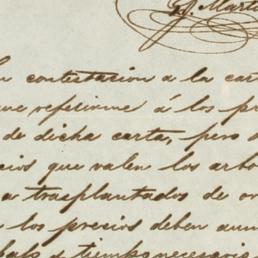 G. Marti
n contestacion a la car
que referirme á los pre
de dicha carta, pero d
cios que valen los arbo
a trasplantados de o
los precios deben aum
bajo y tiempo necesario